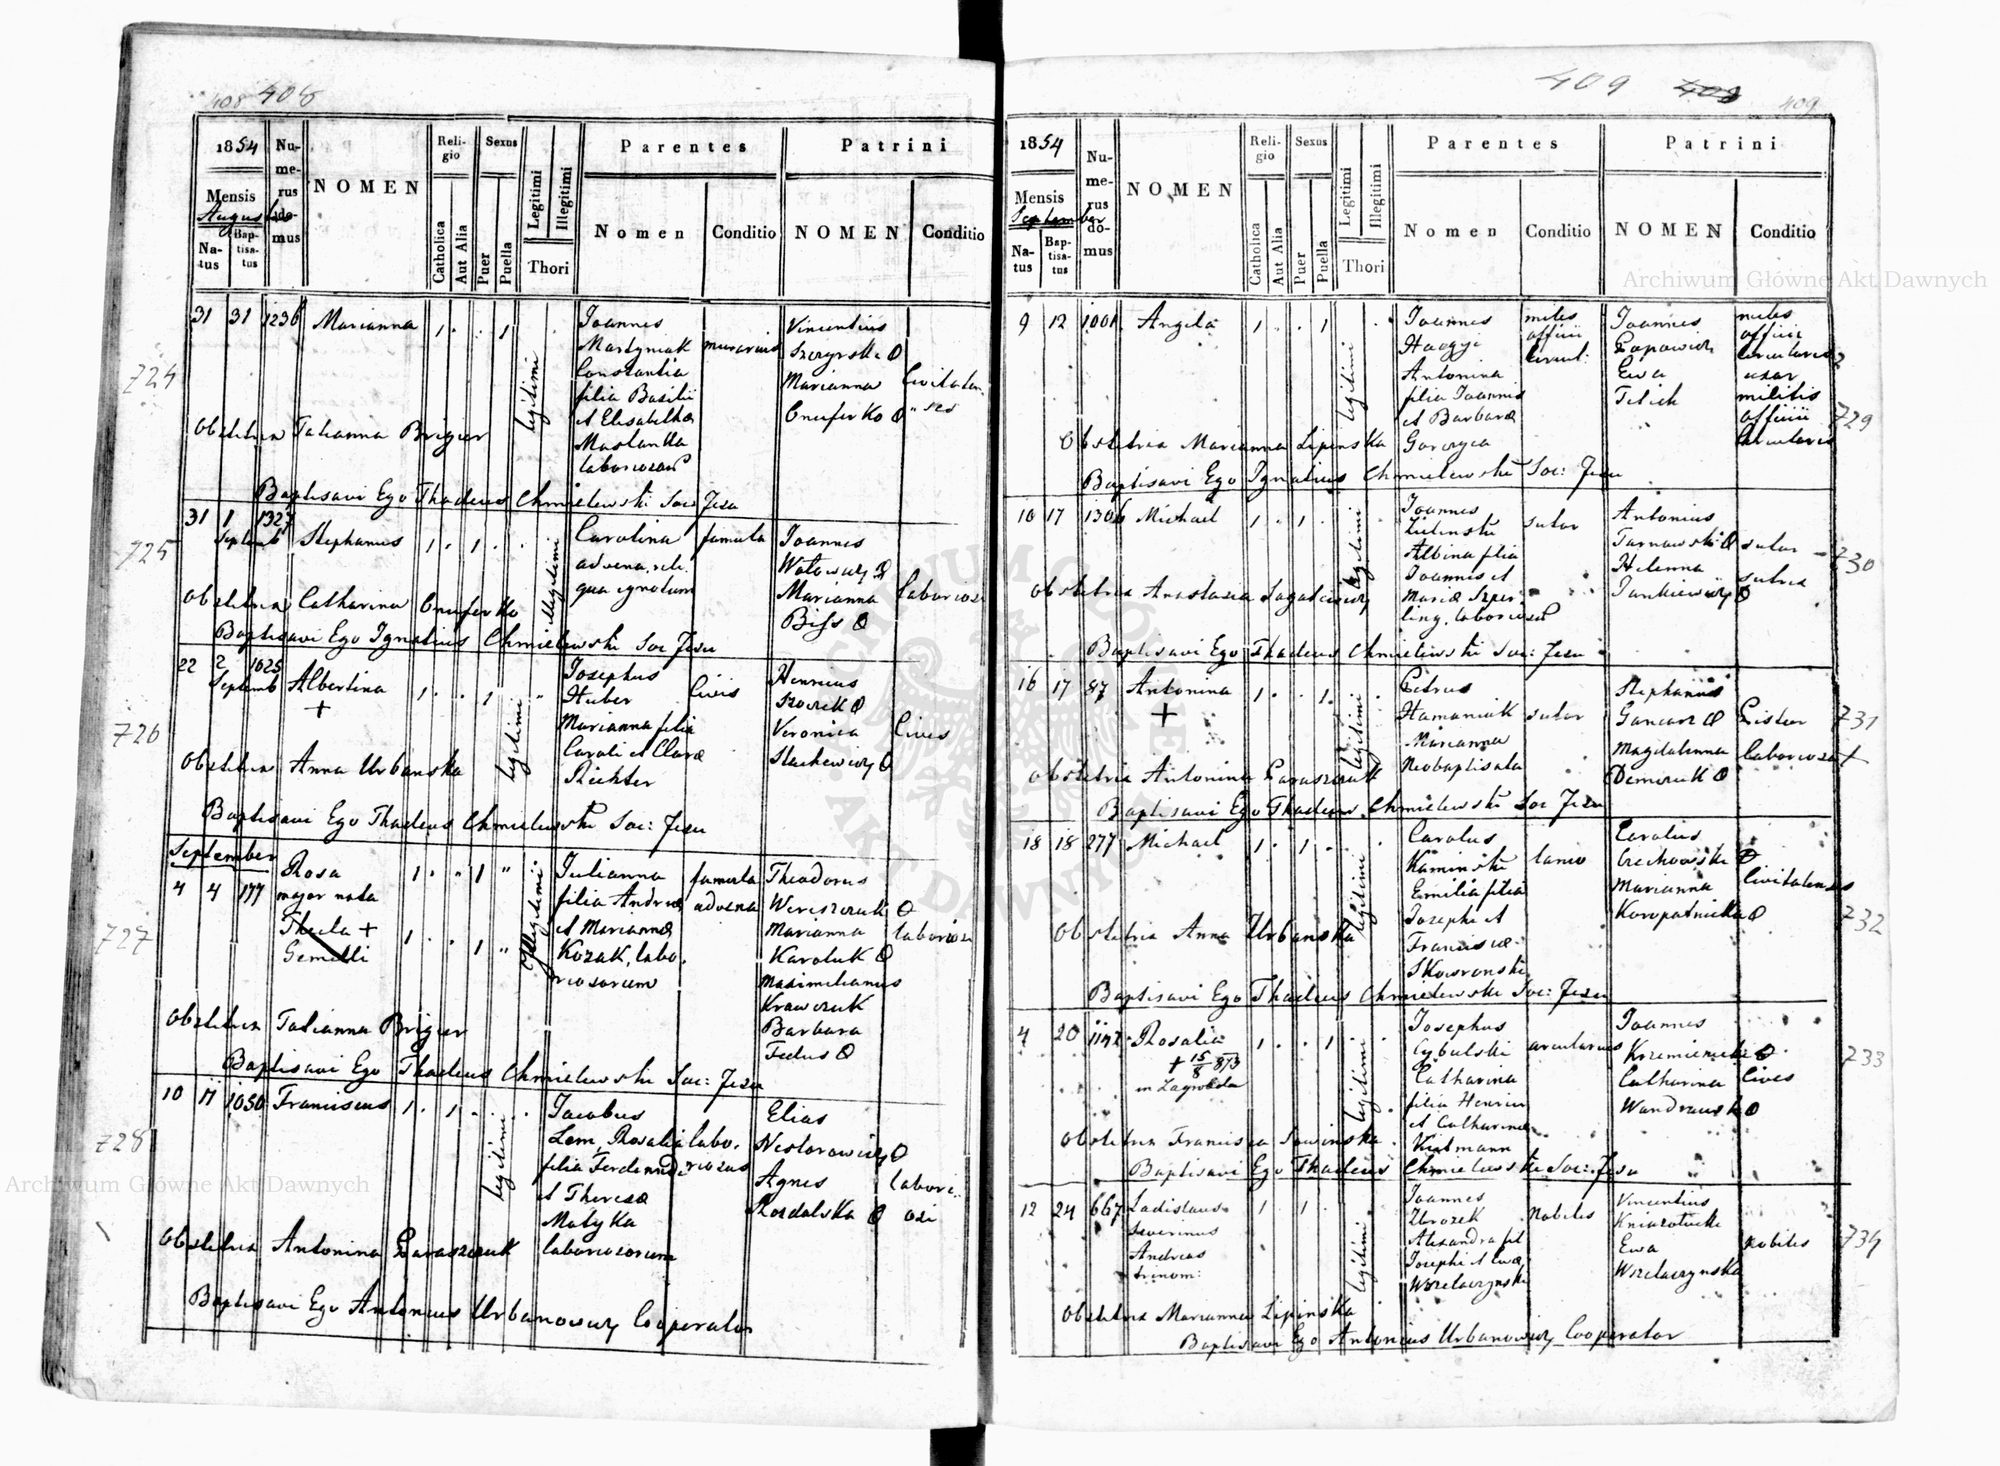 408 408
1854
Mensis
Augustus
Natus
Baptisatus
Numerus domus
NOMEN
Religio
Catholica
Aut Alia
Sexus
Puer
Puella
Legitimi
Illegitimi
Thori
Parentes
Nomen
Conditio
Patrini
NOMEN
Conditio
724
31 31 1236 Marianna 1 . . 1
legitimi
Joannes
Martyniak murarius
Constantia
filia Basilii
et Elisabetha
Maslanka
laboriosor
Vincentius
Marianna Civitaten
Onuferko " ses
Obstetrix Tatianna Brigier
Baptisavi Ego Thadeus Chmielewski Soc Jesu
725
31 1 1327
Septemb Stephanus 1 . 1 .
Illegitimi
Carolina famula
advena, reli
qua ignotum
Joannes
Marianna
Obstetrix Catharina Onuferko
Baptisavi Ego Ignatius Chmielewski Soc Jesu
726
22 2 1025
Septemb Albertina 1 . . 1
+
legitimi
Josephus
Huber Civis
Marianna filia
Caroli et Clarae
Richter
Henricus
Veronica Cives
Obstetrix Anna Urbanska
Baptisavi Ego Thadeus Chmielewski Soc: Jesu
September
727
4 4 177
Rosa 1 . " 1 "
major nata
Thecla + 1 . . 1 "
Gemelli
Illegitimi
Julianna famula
filia Andreae advena
et Mariannae
Kozak, labo.
riosorum
Theodorus
Marianna
Karoluk
Maximilianus
Krawczuk
Barbara
Fedus
Obstetrix Tatianna Brigier
Baptisavi Ego Thadeus Chmielewski Soc: Jesu
728
10 17 1050 Franciscus 1 . 1 .
legitimi
Jacobus
Lem, Rosalia labo.
filia Ferdinandi riosus
et Theresae
Matyka
laboriosorum
Elias
Nestorowicz
Agnes labori.
osi
Obstetrix Antonina Paraszczuk
Baptisavi Ego Antonius Urbanowicz Cooperator
409 408 409
1854
Mensis
September
Natus
Baptisatus
Numerus domus
NOMEN
Religio
Catholica
Aut Alia
Sexus
Puer
Puella
Legitimi
Illegitimi
Thori
Parentes
Nomen
Conditio
Patrini
NOMEN
Conditio
729
9 12 1001 Angela 1 . . 1
legitimi
Joannes miles
officii
Antonina
filia Joannis
et Barbarae
Joannes miles
Popowicz officii
Ewa circularis
uxor
militis
officii
circularis
Obstetrix Marianna Lipinska
Baptisavi Ego Ignatius Chmielewski Soc: Jesu
730
16 17 1306 Michael 1 . 1 .
legitimi
Joannes
Zielinski sutor
Albina filia
Joannis et
Mariae
Antonius
Tarnawski sutor
Helenna
Obstetrix Anastasia
Baptisavi Ego Thadeus Chmielewski Soc: Jesu
731
16 17 87 Antonina 1 . . 1
+
legitimi
Petrus
Hamaniuk sutor
Marianna
Neobaptisata
Stephanus
Gancarz Pistor
Magdalenna laboriosa
Demczuk
Obstetrix Antonina Paraszczuk
Baptisavi Ego Thadeus Chmielewski Soc Jesu
732
18 18 277 Michael 1 . 1 .
legitimi
Carolus
Kaminski lanio
Emilia filia
Josephi et
Franciscae
Skowronski
Carolus
Czechowski
Marianna Civitatenses
Kuropatnicka
Obstetrix Anna Urbanska
Baptisavi Ego Thadeus Chmielewski Soc: Jesu
733
4 20 1147 Rosalia 1 . . 1
+ 15/8 873
in Zagrobela
legitimi
Josephus
Cybulski arcularius
Catharina
filia Henrici
et Catharinae
Joannes
Catharina Cives
Obstetrix Francisca Sowinska
Baptisavi Ego Thadeus Chmielewski Soc: Jesu
734
12 24 667 Ladislaus 1 1
Severinus
Andreas
trinom:
legitimi
Joannes
Zbrozek Nobiles
Alexandra fil
Josephi et Evae
Wszelaczynski
Vincentius
Kniazolucki
Ewa Nobiles
Wszelaczynska
Obstetrix Marianna Lipinska
Baptisavi Ego Antonius Urbanowicz Cooperator
Archiwum Główne Akt Dawnych
Archiwum Główne Akt Dawnych
ARCHIWUM GŁÓWNE AKT DAWNYCH